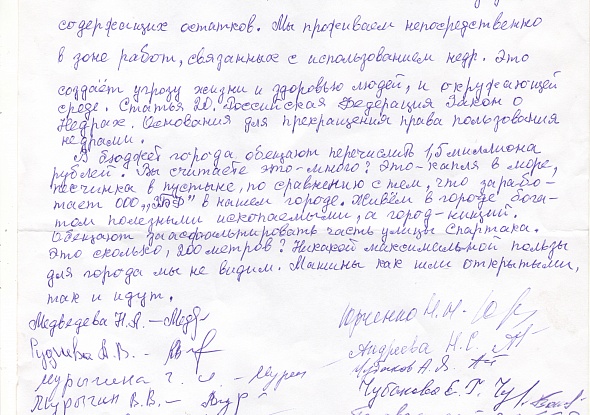 содержащих остатков. Мы проживаем непосредственно
в зоне работ, связанных с использованием недр. Это
создаёт угрозу жизни и здоровью людей, и окружающей
среде. Статья 20. Российская Федерация Закон о
Недрах. Основания для прекращения права пользования
недрами.
В бюджет города обещают перечислить 1,5 миллиона
рублей. Вы считаете это-много? Это-капля в море,
песчинка в пустыне, по сравнению с тем, что зарабо-
тает ООО в нашем городе. Живём в городе бога-
том полезными ископаемыми, а город-нищий.
Обещают заасфальтировать часть улицы Спартака.
Это сколько, 200 метров? Никакой максимальной пользы
для города мы не видим. Машины как шли открытыми,
так и идут.
Медведева Н.Я. - Медв
Юрченко Н.Н.
Руднева А.В. -
Андреева Н.С.
Мурыгина Г. И. - Мурыг
Чубаков А.Я.
Мурыгин В.В. -
Чубакова Е.Г. Чуб